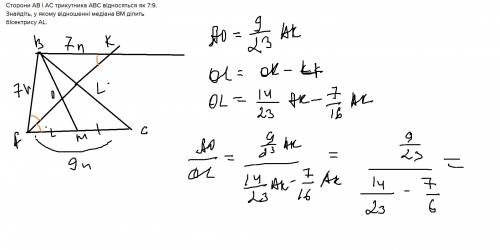 Сторони АВ і АС трикутника АВС відносяться як 7:9.
Знайдіть, у якому відношенні медіана ВМ ділить
бісектрису AL.
B 7n K
7n
O L
A M C
9n
AO = 9/23 AK
OL = OK - LK
OL = 14/23 AK - 7/16 AK
AO/OL = (9/23 AK)/(14/23 AK - 7/16 AK) = (9/23)/(14/23 - 7/6) =